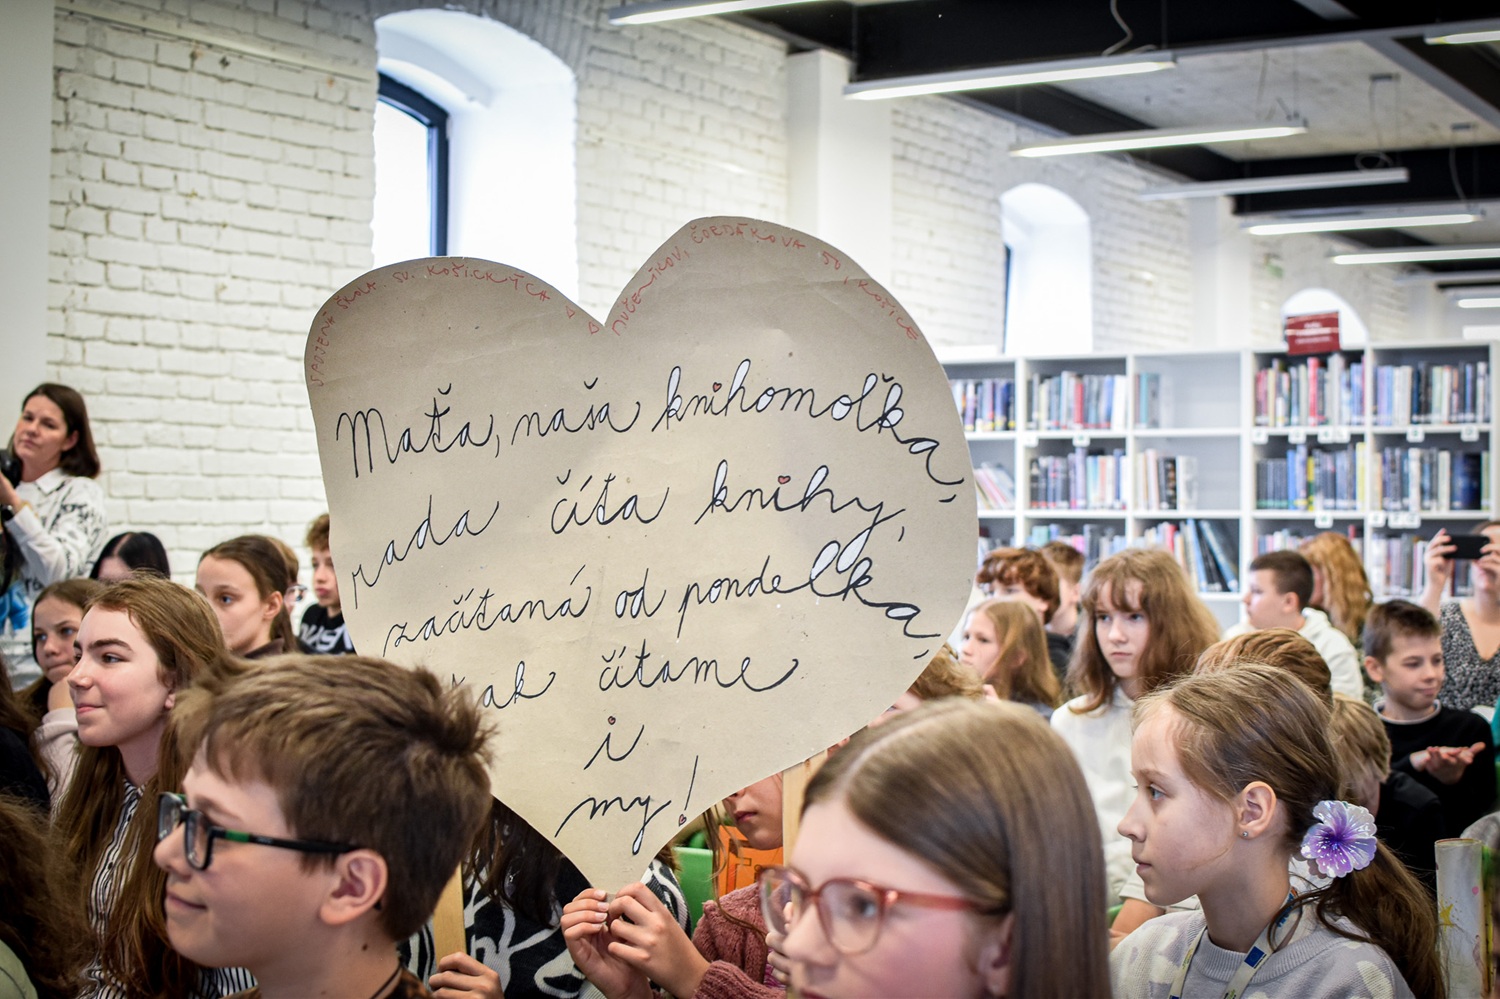 SPOJENÁ ŠKOLA SV. KOŠICKÝCH
MUČENÍKOV, ČORDÁKOVA 50, KOŠICE
Maťa, naša knihomoľka,
rada číta knihy,
začítaná od pondelka,
tak čítame
i
my!